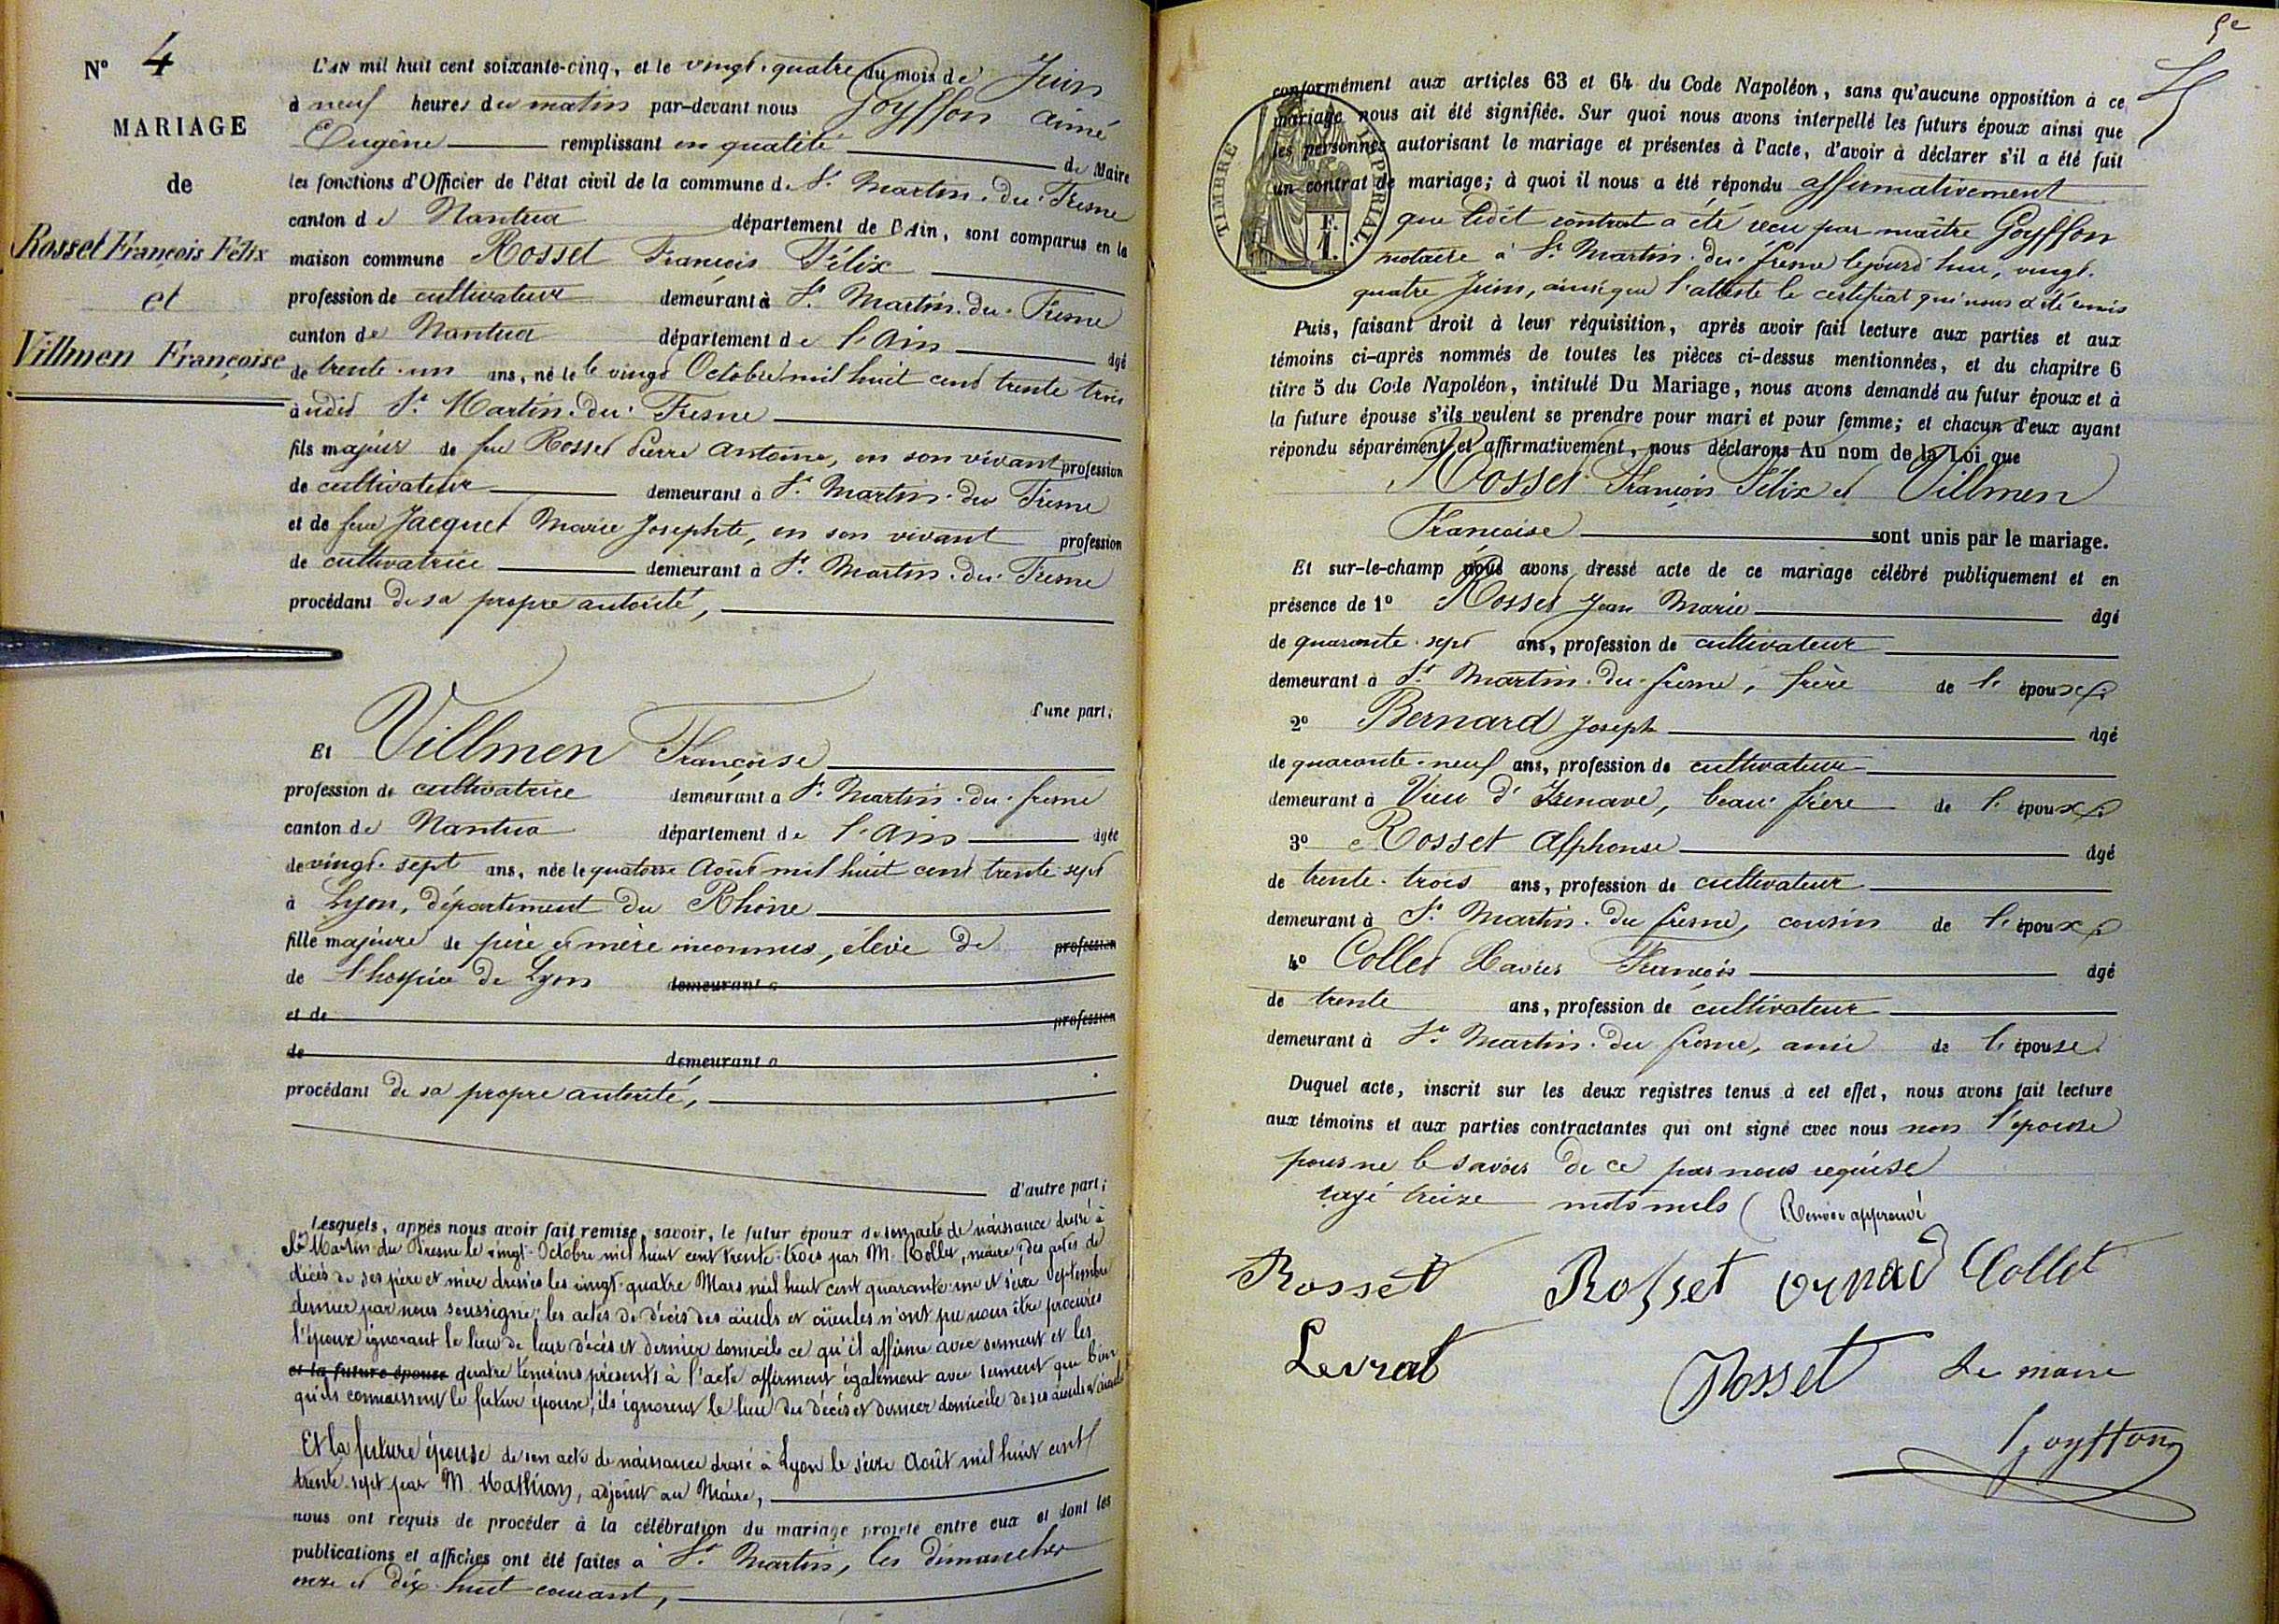 N° 4
MARIAGE
de
Rosset François Félix
et
Villmen Françoise
L'AN mil huit cent soixante-cinq, et le vingt-quatre du mois de Juin
à neuf heures du matin par-devant nous Goyffon aimé
Eugène remplissant en qualité de Maire
les fonctions d'Officier de l'état civil de la commune de St Martin-du-Fresne
canton de Nantua département de l'Ain, sont comparus en la
maison commune Rosset François Félix
profession de cultivateur demeurant à St Martin-du-Fresne
canton de Nantua département de l'Ain âgé
de trente-un ans, né le le vingt Octobre mil huit cent trente trois
audit St Martin-du-Fresne
fils majeur de feu Rosset Pierre Antoine, en son vivant profession
de cultivateur demeurant à St Martin-du Fresne
et de feue Jacquet Marie Josephte, en son vivant profession
de cultivatrice demeurant à St Martin-du-Fresne
procédant de sa propre autorité,
d'une part;
Et Villmen Françoise
profession de cultivatrice demeurant à St Martin-du-fresne
canton de Nantua département de l'Ain âgée
de vingt-sept ans, née le quatorze Août mil huit cent trente sept
à Lyon, département du Rhône
fille majeure de père et mère inconnus, élevée de profession
de l'hospice de Lyon demeurant à
et de profession
de demeurant à
procédant de sa propre autorité,
d'autre part;
Lesquels, après nous avoir fait remise, savoir, le futur époux de son acte de naissance dressé à
St Martin du Fresne le vingt Octobre mil huit cent trente-trois par M. Collet, maire; des actes de
décès de ses père et mère dressés les vingt-quatre Mars mil huit cent quarante-un et seize Septembre
dernier par nous soussigné; les actes de décès des aïeuls et aïeules n'ont pu nous être procurés
l'époux ignorant le lieu de leur décès et dernier domicile ce qu'il affirme avec serment et les
et la future épouse quatre témoins présents à l'acte affirment également avec serment que bien
qu'ils connaissent le futur époux, ils ignorent le lieu du décès et dernier domicile de ses aïeuls et aïeules
Et la future épouse de son acte de naissance dressé à Lyon le seize Août mil huit cent
trente-sept par M. Mathian, adjoint au Maire,
nous ont requis de procéder à la célébration du mariage projeté entre eux et dont les
publications et affiches ont été faites à St Martin, les dimanches
onze et dix-huit courant,
5e
conformément aux articles 63 et 64 du Code Napoléon, sans qu'aucune opposition à ce
mariage nous ait été signifiée. Sur quoi nous avons interpellé les futurs époux ainsi que
les personnes autorisant le mariage et présentes à l'acte, d'avoir à déclarer s'il a été fait
un contrat de mariage; à quoi il nous a été répondu affirmativement
TIMBRE IMPÉRIAL
F.
1.
que ledit contrat a été reçu par maître Goyffon
notaire à St Martin-du-fresne lejourd'hui, vingt-
quatre Juin, ainsi que l'atteste le certificat qui nous a été remis
Puis, faisant droit à leur réquisition, après avoir fait lecture aux parties et aux
témoins ci-après nommés de toutes les pièces ci-dessus mentionnées, et du chapitre 6
titre 5 du Code Napoléon, intitulé Du Mariage, nous avons demandé au futur époux et à
la future épouse s'ils veulent se prendre pour mari et pour femme; et chacun d'eux ayant
répondu séparément et affirmativement, nous déclarons Au nom de la Loi que
Rosset François Félix et Villmen
Françoise sont unis par le mariage.
Et sur-le-champ nous avons dressé acte de ce mariage célébré publiquement et en
présence de 1° Rosset Jean Marie âgé
de quarante-sept ans, profession de cultivateur
demeurant à St Martin-du-fresne, frère de l'époux
2° Bernard Joseph âgé
de quarante-neuf ans, profession de cultivateur
demeurant à Vieu d'Izenave, beau-frère de l'époux
3° Rosset Alphonse âgé
de trente-trois ans, profession de cultivateur
demeurant à St Martin-du fresne, cousin de l'époux
4° Collet Xavier François âgé
de trente ans, profession de cultivateur
demeurant à St Martin-du fresne, ami de l'épouse
Duquel acte, inscrit sur les deux registres tenus à cet effet, nous avons fait lecture
aux témoins et aux parties contractantes qui ont signé avec nous non l'épouse
pour ne le savoir de ce par nous requise
rayé treize mots nuls (Renvoi approuvé
Rosset Rosset Collet
Levrat Rosset Le maire
Goyffon